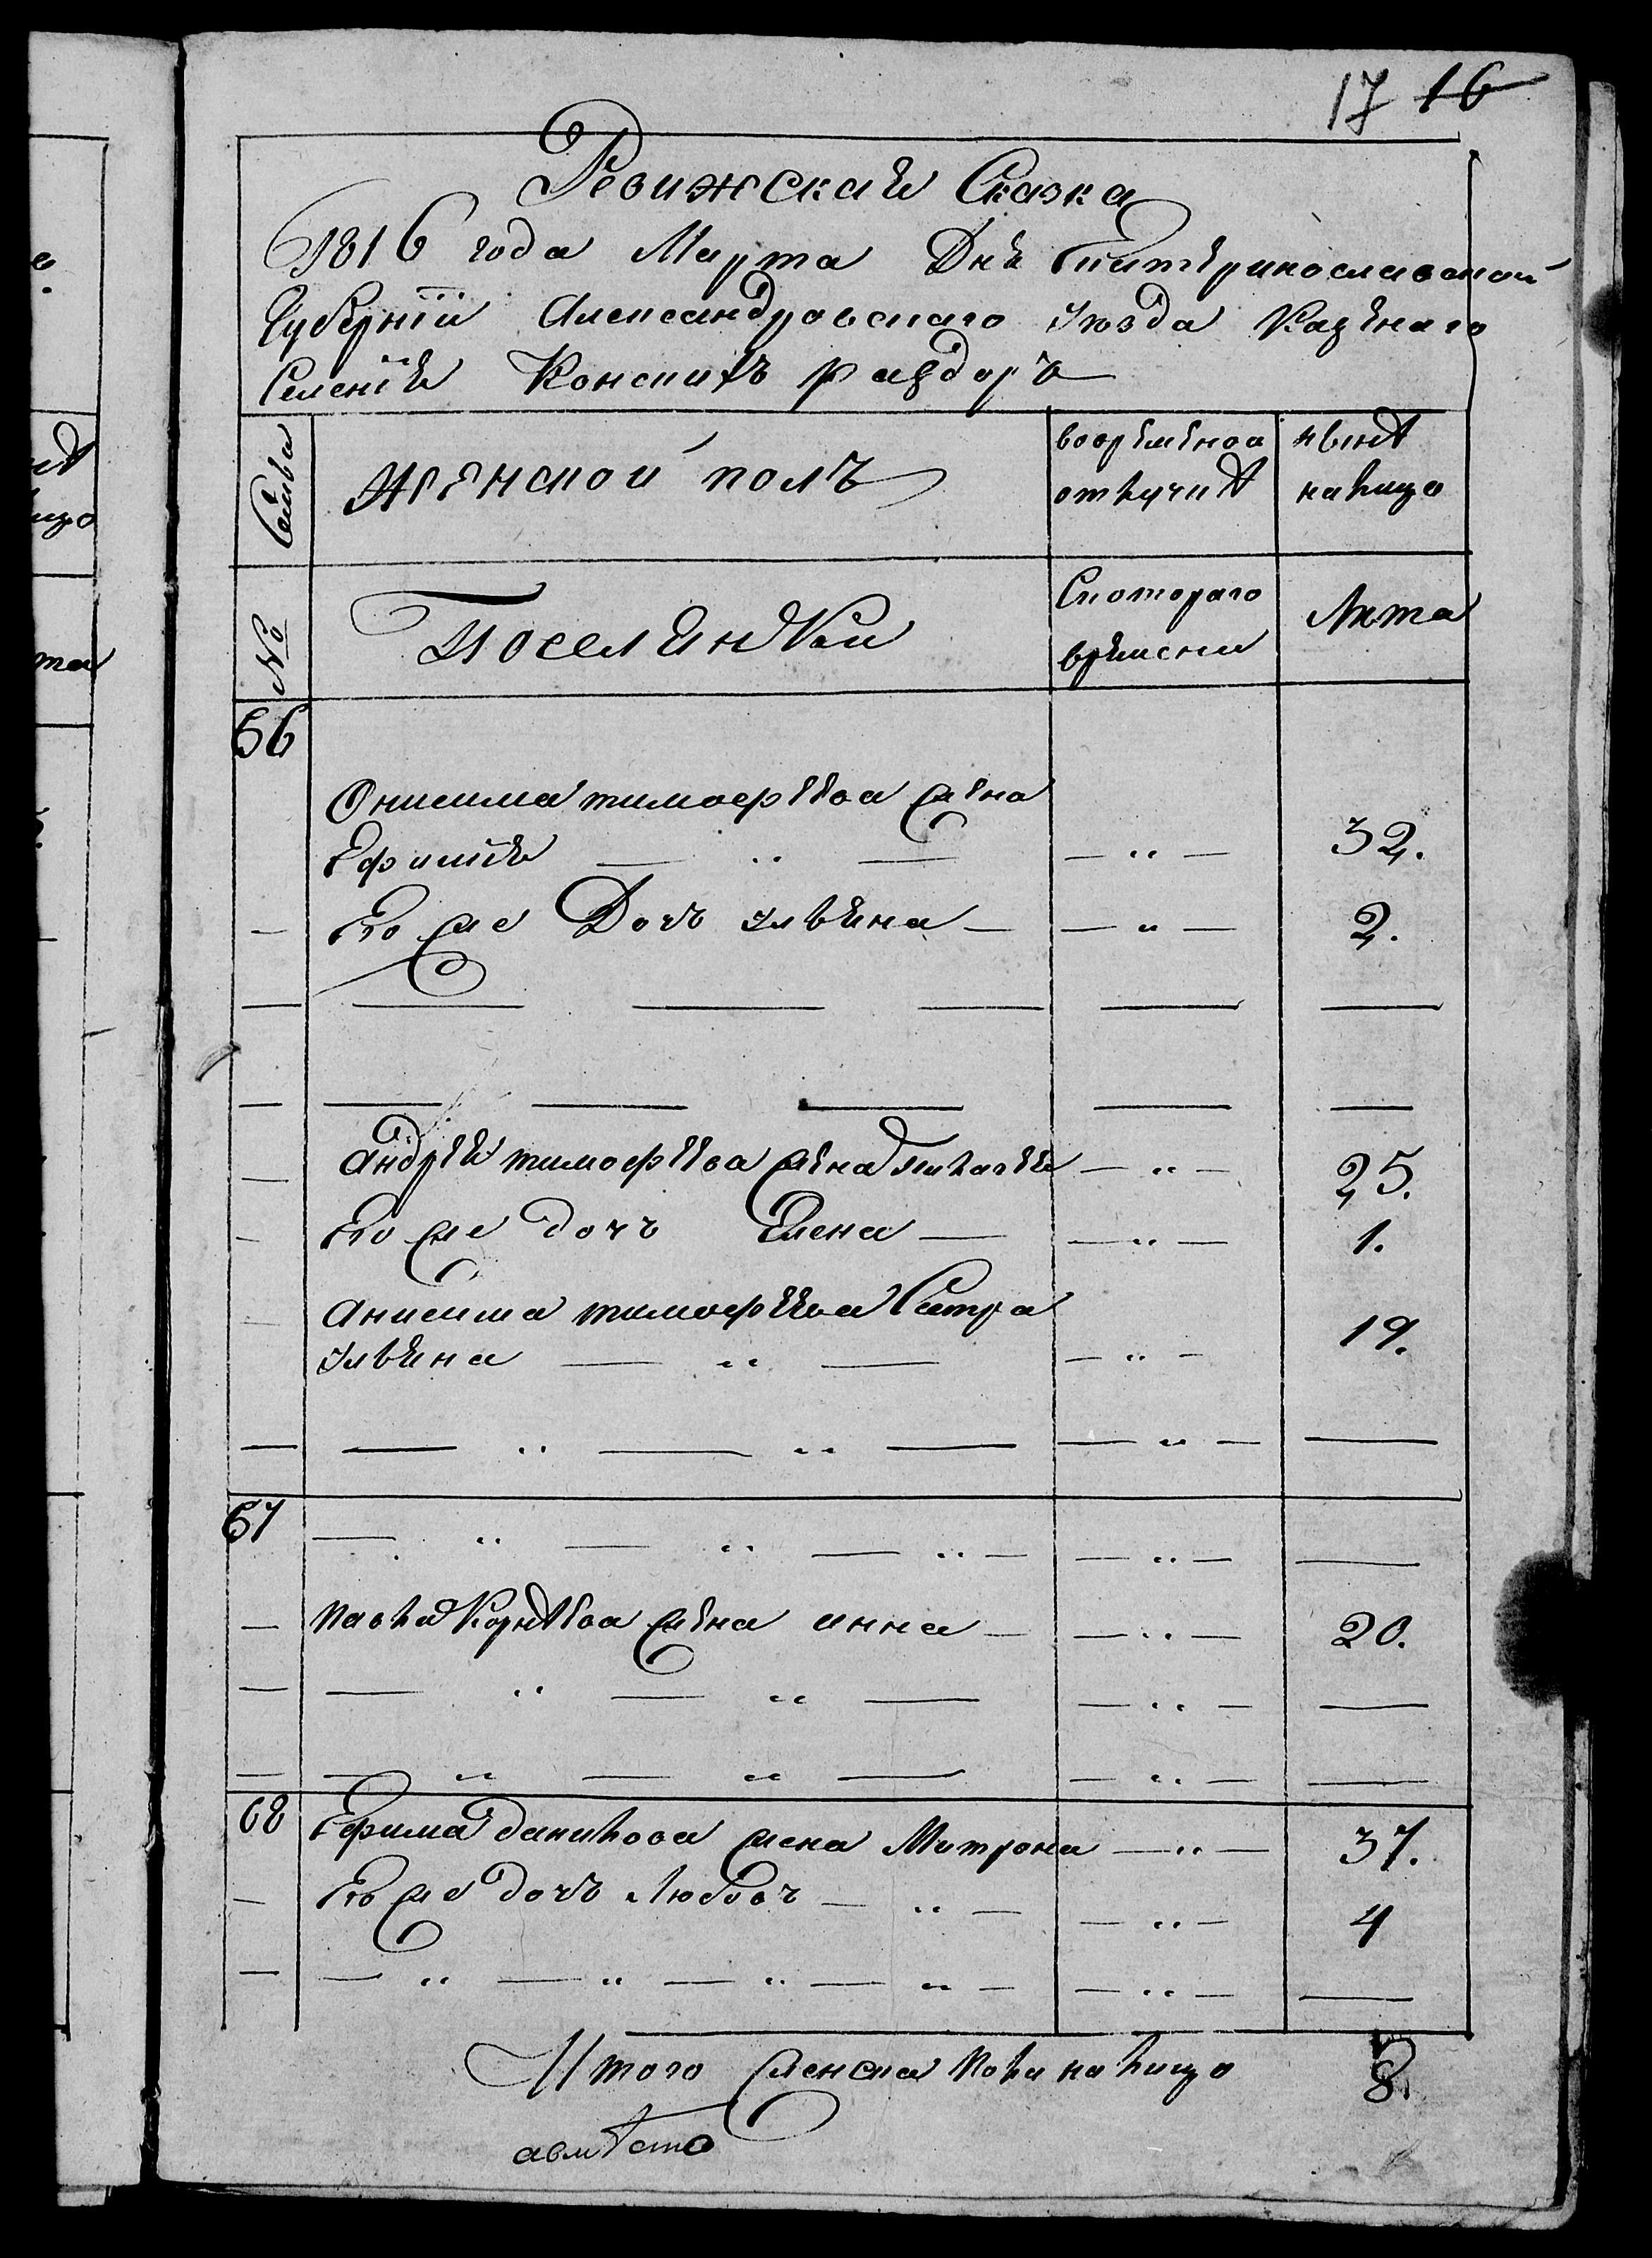 17 16
Ревижская Сказка
1816 года Марта Дня Екатеринославской
Губернïи Александровскаго уѣзда Казенаго
Селенïя Конскихъ раздоръ
Семья
женской полъ
во временной
отлучкѣ
нынѣ
на лицо
№
поселянки
С котораго
времени
Лѣта
56
Онисима тимофеева жена
Ефимïя — „ — — „ — 32.
— Его же Дочь ульяна — — „ — 2.
— — — — — —
— — — — — —
— андрея тимофеева жена пелагея — „ — 25.
— Его же дочь Елена — — „ — 1.
анисима тимофеева Сестра
ульяна — „ — — „ — 19.
— — „ — „ — — „ — —
67 — „ — „ — „ — — „ — —
— павла Корнѣева жена анна — — „ — 20.
— — „ — „ — — „ — —
— — „ — „ — — „ — —
68 Ефима данилова жена Матрона — „ — 37.
— Его же дочь Любовь — „ — — „ — 4
— — „ — „ — „ — „ — — „ — —
Итого женска пола на лицо 8.
авмѣсто